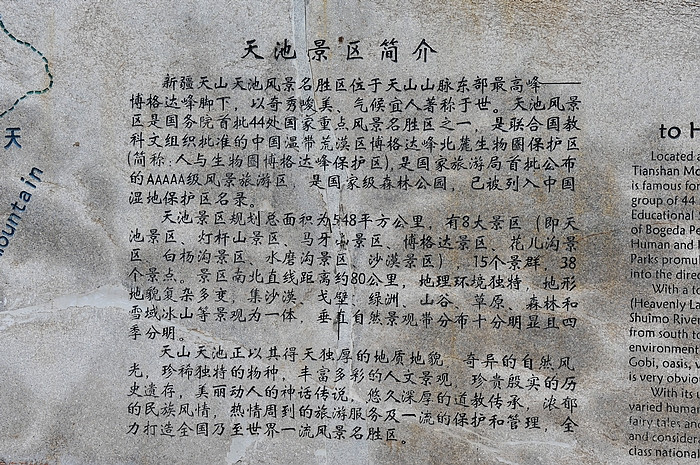 天池景区简介
新疆天山天池风景名胜区位于天山山脉东部最高峰——
博格达峰脚下，以奇秀峻美、气候宜人著称于世。天池风景
区是国务院首批44处国家重点风景名胜区之一，是联合国教
科文组织批准的中国温带荒漠区博格达峰北麓生物圈保护区
(简称:人与生物圈博格达峰保护区),是国家旅游局首批公布
的AAAAA级风景旅游区，是国家级森林公园，已被列入中国
湿地保护区名录。
天池景区规划总面积为548平方公里，有8大景区（即天
池景区、灯杆山景区、马牙山景区、博格达景区、花儿沟景
区、白杨沟景区、水磨沟景区、沙漠景区），15个景群，38
个景点。景区南北直线距离约80公里，地理环境独特，地形
地貌复杂多变，集沙漠、戈壁、绿洲、山谷、草原、森林和
雪域冰山等景观为一体，垂直自然景观带分布十分明显且四
季分明。
天山天池正以其得天独厚的地质地貌，奇异的自然风
光，珍稀独特的物种，丰富多彩的人文景观，珍贵殷实的历
史遗存，美丽动人的神话传说，悠久深厚的道教传承，浓郁
的民族风情，热情周到的旅游服务及一流的保护和管理，全
力打造全国乃至世界一流风景名胜区。
天
ountain
to H
Located
Tianshan Mo
is famous fo
group of 44
Educational
of Bogeda Pe
Human and
Parks promul
into the direc
With a to
(Heavenly La
Shuimo River
from south to
environment
Gobi, oasis, v
is very obvio
With its u
varied human
fairy tales and
and consider
class national